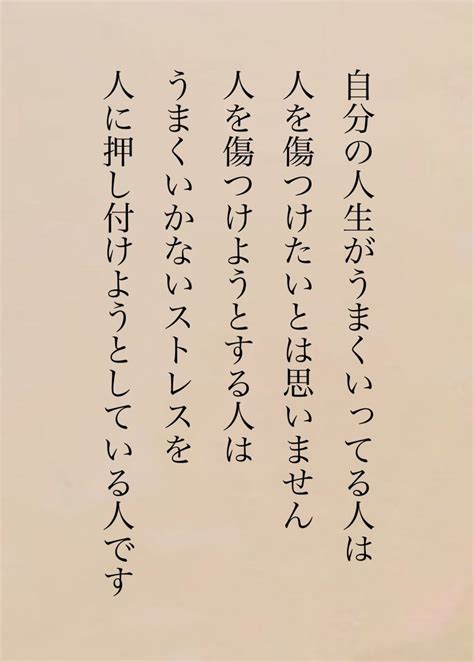 自分の人生がうまくいってる人は
人を傷つけたいとは思いません
人を傷つけようとする人は
うまくいかないストレスを
人に押し付けようとしている人です